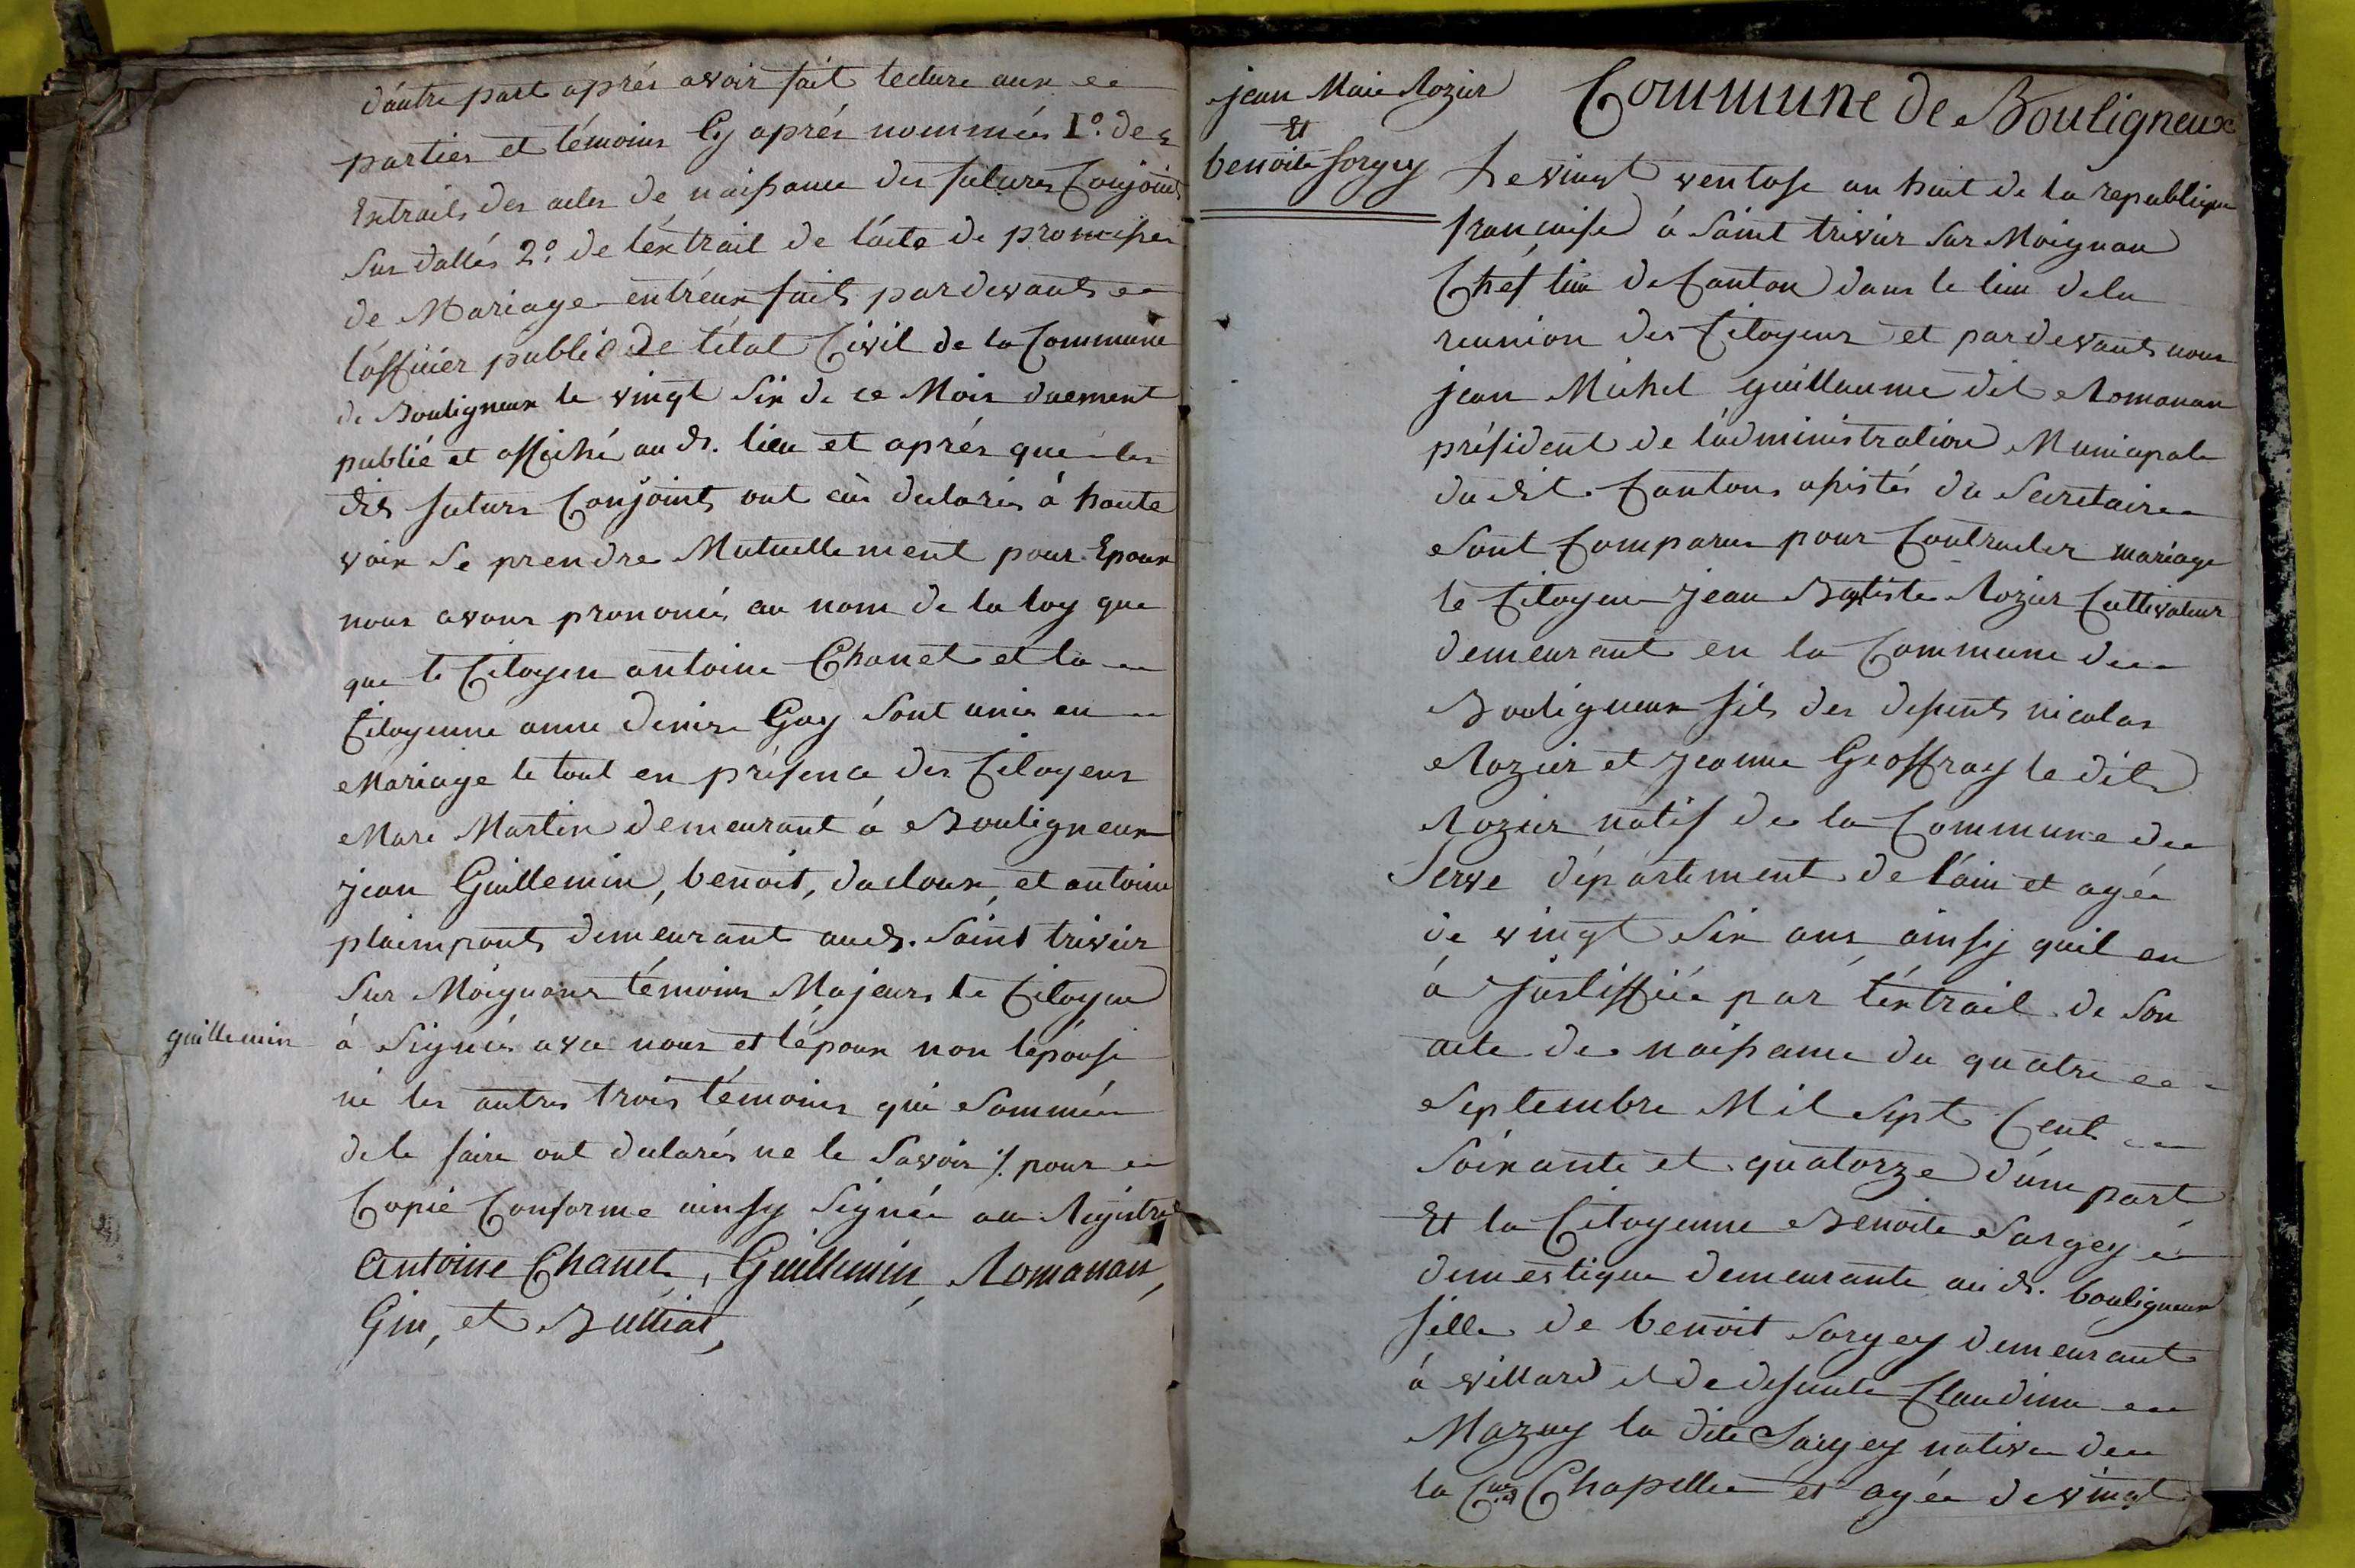 d'autre part aprés avoir fait lecture aux
parties et témoins Cy aprés nommés 1º. des
Extraits des actes de naissance des futures Conjoints
Sus dattés 2º. de l'extrait de l'acte de promesses
de Mariage entr'eux fait pardevant
l'officier public de l'état Civil de la Commune
de Bouligneux le vingt Six de ce Mois duement
publié et affiché aud. lieu et aprés que les
dits futurs Conjoints ont eus declarés à haute
voix Se prendre Mutuellement pour Epoux
nous avons prononcé au nom de la loy que
que le Citoyen antoine Chanet et la
Citoyenne anne denise Guy Sont unis en
Mariage le tout en présence des Citoyens
Marc Martin demeurant à Bouligneux
jean Guillemin, benoit, ducloux, et antoine
plaimpont demeurant aud. Saint trivier
Sur Moignans témoins Majeurs le Citoyen
guillemin
à Signés avec nous et l'époux non l'épouse
ni les autres trois témoins qui Sommés
de le faire ont declarés ne le Savoir ./. pour
Copie Conforme ainsy Signée au Registre
Antoine Chanet, Guillemin, Romanan,
Gin, et Bulliat,
jean Marie Rozier
Et
benoite Sorgey
Commune de Bouligneux
Le vingt ventose an huit de la republique
française à Saint trivier Sur Moignan
Chef lieu de Canton dans le lieu de la
reunion des Citoyens et pardevant nous
jean Michel guillaume dit Romanan
président de l'administration Municipale
dudit Canton assistés du Secretaire
Sont Comparus pour Contracter mariage
le Citoyen jean Baptiste Rozier Cultivateur
demeurant en la Commune de
Bouligneux fils des defunts nicolas
Rozier et jeanne Geoffray le dit
Rozier natif de la Commune de
Serve département de l'ain et agée
de vingt Six ans ainsy quil en
à justiffiée par l'extrait de Son
acte de naissance du quatre
Septembre Mil Sept Cent
Soixante et quatorze d'une part
Et la Citoyenne Benoite Sorgey
domestique demeurante aud. bouligneux
fille de benoit Sorgey demeurant
à villard et de defunte Claudine
Mazuy la dite Sorgey native de
la Cne. Chapelle et agée de vingt